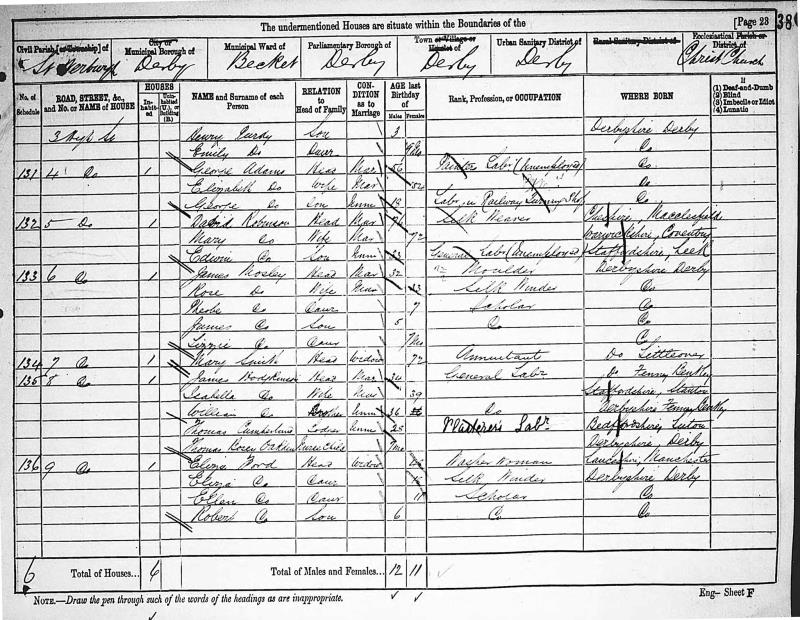 The undermentioned Houses are situate within the Boundaries of the [Page 23 38
Civil Parish [or Township] of City or Municipal Borough of Municipal Ward of Parliamentary Borough of Town or Village or Hamlet of Urban Sanitary District of Rural Sanitary District of Ecclesiastical Parish or District of
Derby Becket Derby Derby Derby Christ Church
No. of Schedule ROAD, STREET, &c., and No. or NAME of HOUSE HOUSES Inhabited Uninhabited (U.), or Building (B.) NAME and Surname of each Person RELATION to Head of Family CONDITION as to Marriage AGE last Birthday of Males Females Rank, Profession, or OCCUPATION WHERE BORN If (1) Deaf-and-Dumb (2) Blind (3) Imbecile or Idiot (4) Lunatic
3 St Henry Purdy Son 3 Derbyshire Derby
Emily Do Daur 9 Mo Do
131 4 Do 1 George Adams Head Mar 56 Labr (Unemployed) Do
Elizabeth Do Wife Mar 50 Do
George Do Son Unm 18 Labr in Railway Shop Do
132 5 Do 1 David Robinson Head Mar 71 Silk Weaver Cheshire, Macclesfield
Mary Do Wife Mar 72 Warwickshire, Coventry
Edwin Do Son Unm 23 General Labr (Unemployed) Staffordshire, Leek
133 6 Do 1 James Mosley Head Mar 32 Moulder Derbyshire Derby
Rose Do Wife Mar 33 Silk Winder Do
Phebe Do Daur 7 Scholar Do
James Do Son 5 Do Do
Lizzie Do Daur 7 Mo Do
134 7 Do 1 Mary Smith Head Widow 72 Annuitant Do Littleover
135 8 Do 1 James Hodgkinson Head Mar 34 General Labr Do Fenny Bentley
Isabella Do Wife Mar 39 Staffordshire, Stanton
William Do Brother Unm 36 Do Derbyshire Fenny Bentley
Thomas Cumberland Lodger Unm 25 Plasterer's Labr Bedfordshire, Luton
Thomas Oakden Nurse Child 7 Mo Derbyshire, Derby
136 9 Do 1 Eliza Ford Head Widow Washer Woman Lancashire, Manchester
Eliza Do Daur Silk Winder Derbyshire Derby
Ellen Do Daur 11 Scholar Do
Robert Do Son 6 Do Do
6 Total of Houses... 6 Total of Males and Females... 12 11
NOTE.—Draw the pen through such of the words of the headings as are inappropriate. Eng- Sheet F